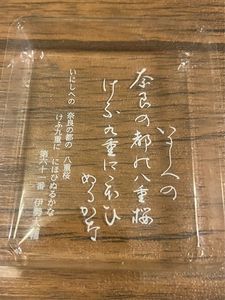 いにしへの
奈良の都の八重桜
けふ九重ににほひ
ぬるかな
いにしへの 奈良の都の 八重桜
けふ九重に にほひぬるかな
第六十一番 伊勢大輔